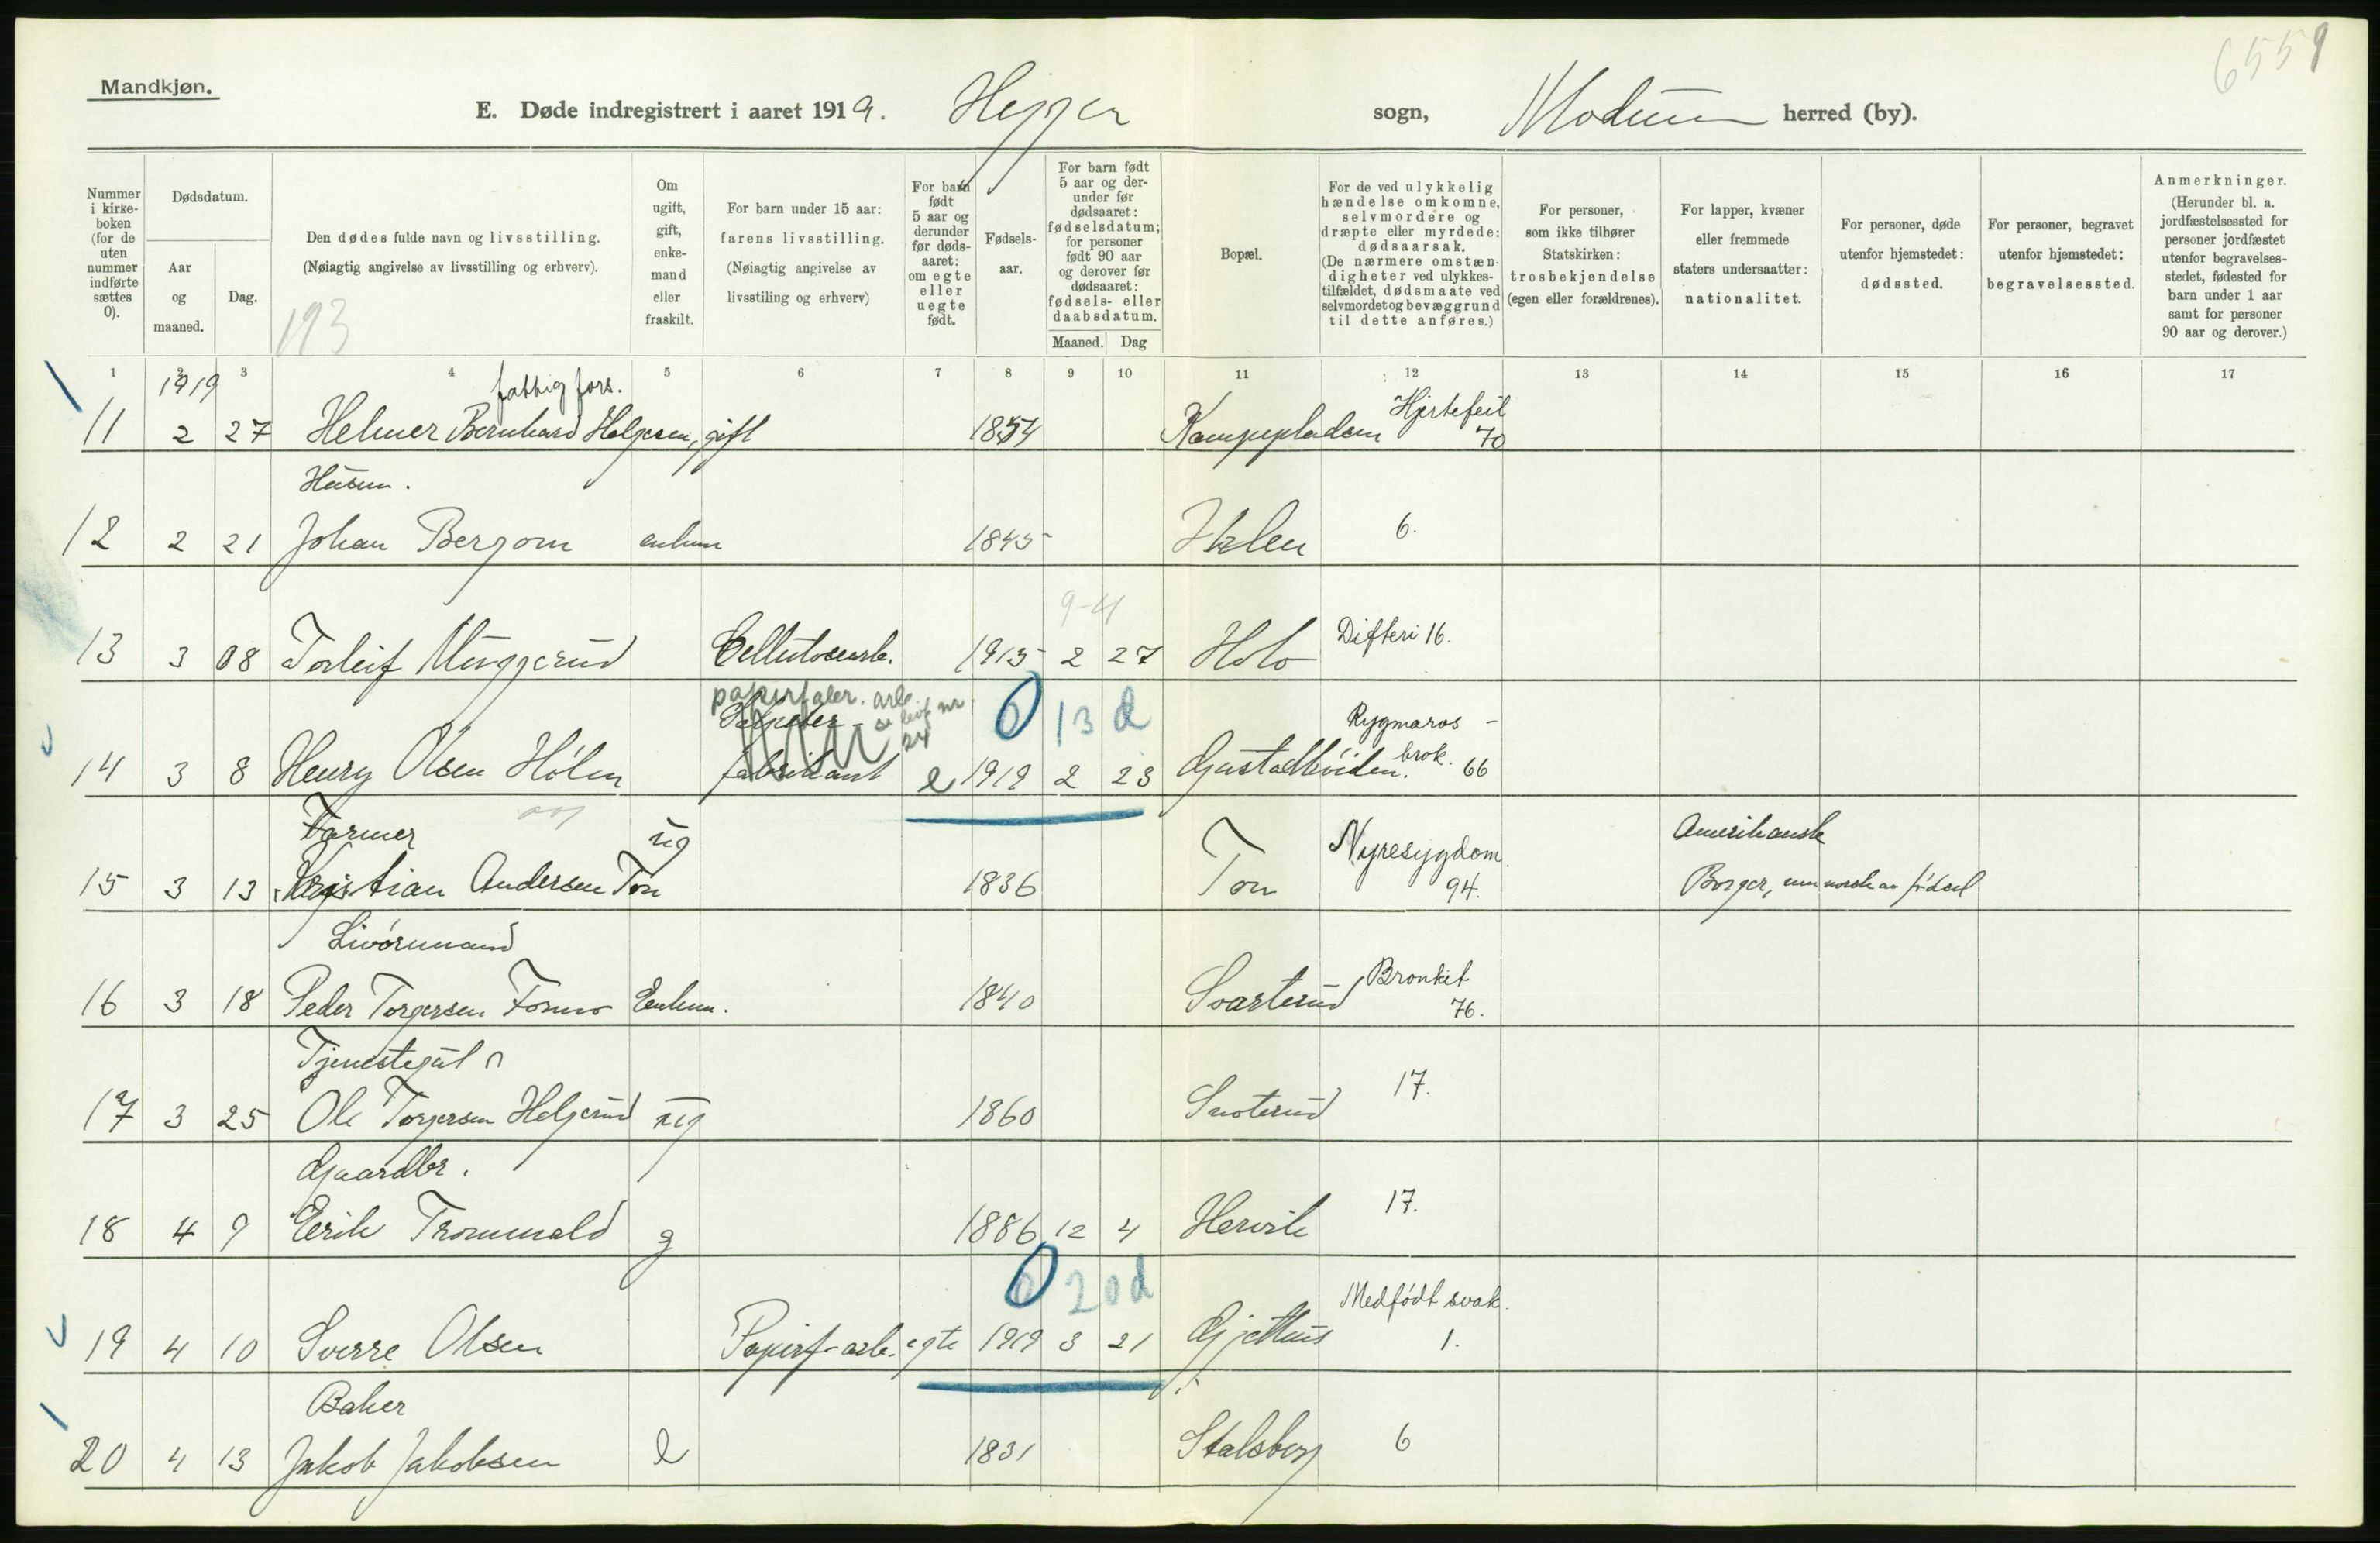 6559
Mandkjøn.
E. Døde indregistrert i aaret 1919. Heggen sogn, Modum herred (by).
Nummer i kirke-boken (for de uten nummer indførte sættes 0).
Dødsdatum.
Aar og maaned.
Dag.
Den dødes fulde navn og livsstilling.
(Nøiagtig angivelse av livsstilling og erhverv).
193
Om ugift, gift, enke-mand eller fraskilt.
For barn under 15 aar: farens livsstilling.
(Nøiagtig angivelse av livsstiling og erhverv)
For barn født 5 aar og derunder før døds-aaret: om egte eller uegte født.
Fødsels-aar.
For barn født 5 aar og der-under før dødsaaret: fødselsdatum; for personer født 90 aar og derover før dødsaaret: fødsels- eller daabsdatum.
Maaned. Dag
Bopæl.
For de ved ulykkelig hændelse omkomne, selvmordere og dræpte eller myrdede: dødsaarsak. (De nærmere omstæn-digheter ved ulykkes-tilfældet, dødsmaate ved selvmordet og bevæggrund til dette anføres.)
For personer, som ikke tilhører Statskirken: trosbekjendelse (egen eller forældrenes).
For lapper, kvæner eller fremmede staters undersaatter: nationalitet.
For personer, døde utenfor hjemstedet: dødssted.
For personer, begravet utenfor hjemstedet: begravelsessted.
Anmerkninger. (Herunder bl. a. jordfæstelsessted for personer jordfæstet utenfor begravelses-stedet, fødested for barn under 1 aar samt for personer 90 aar og derover.)
1 2 3 4 5 6 7 8 9 10 11 12 13 14 15 16 17
1919 fattig fors. Hjertefeil
11 2 27 Helmer Bernhard Holgersen, gift 1854 Kampepladsen 70
Husm.
12 2 21 Johan Bergom enkem 1845 6.
9-4
13 3 08 Torleif Muggerud Cellulosearb. 1915 2 27 Holo Difteri 16.
papirfabr. arb. se leif nr 24 0 13 d Rygmarvs-
14 3 8 Henry Olsen Hölen fabrikant e 1919 2 23 brok. 66
Farmer ug Nyresygdom. Amerikansk
15 3 13 Kristian Andersen Ton 1836 Ton 94. Borger, men norsk av födsel
Livöremand Bronkit
16 3 18 Peder Torgersen Formo Enkem. 1840 Svarterud 76.
Tjenestegut
17 3 25 Ole Torgersen Helgerud ug 1860 Snoterud 17.
Gaardbr.
18 4 9 Eerik Trommald g 1886 12 4 Hervik 17.
0 20d Medfödt svak.
19 4 10 Sverre Olsen Papirf-arb. egte 1919 3 21 Gjethus 1.
Baker
20 4 13 Jakob Jakobsen e 1831 Stalsberg 6